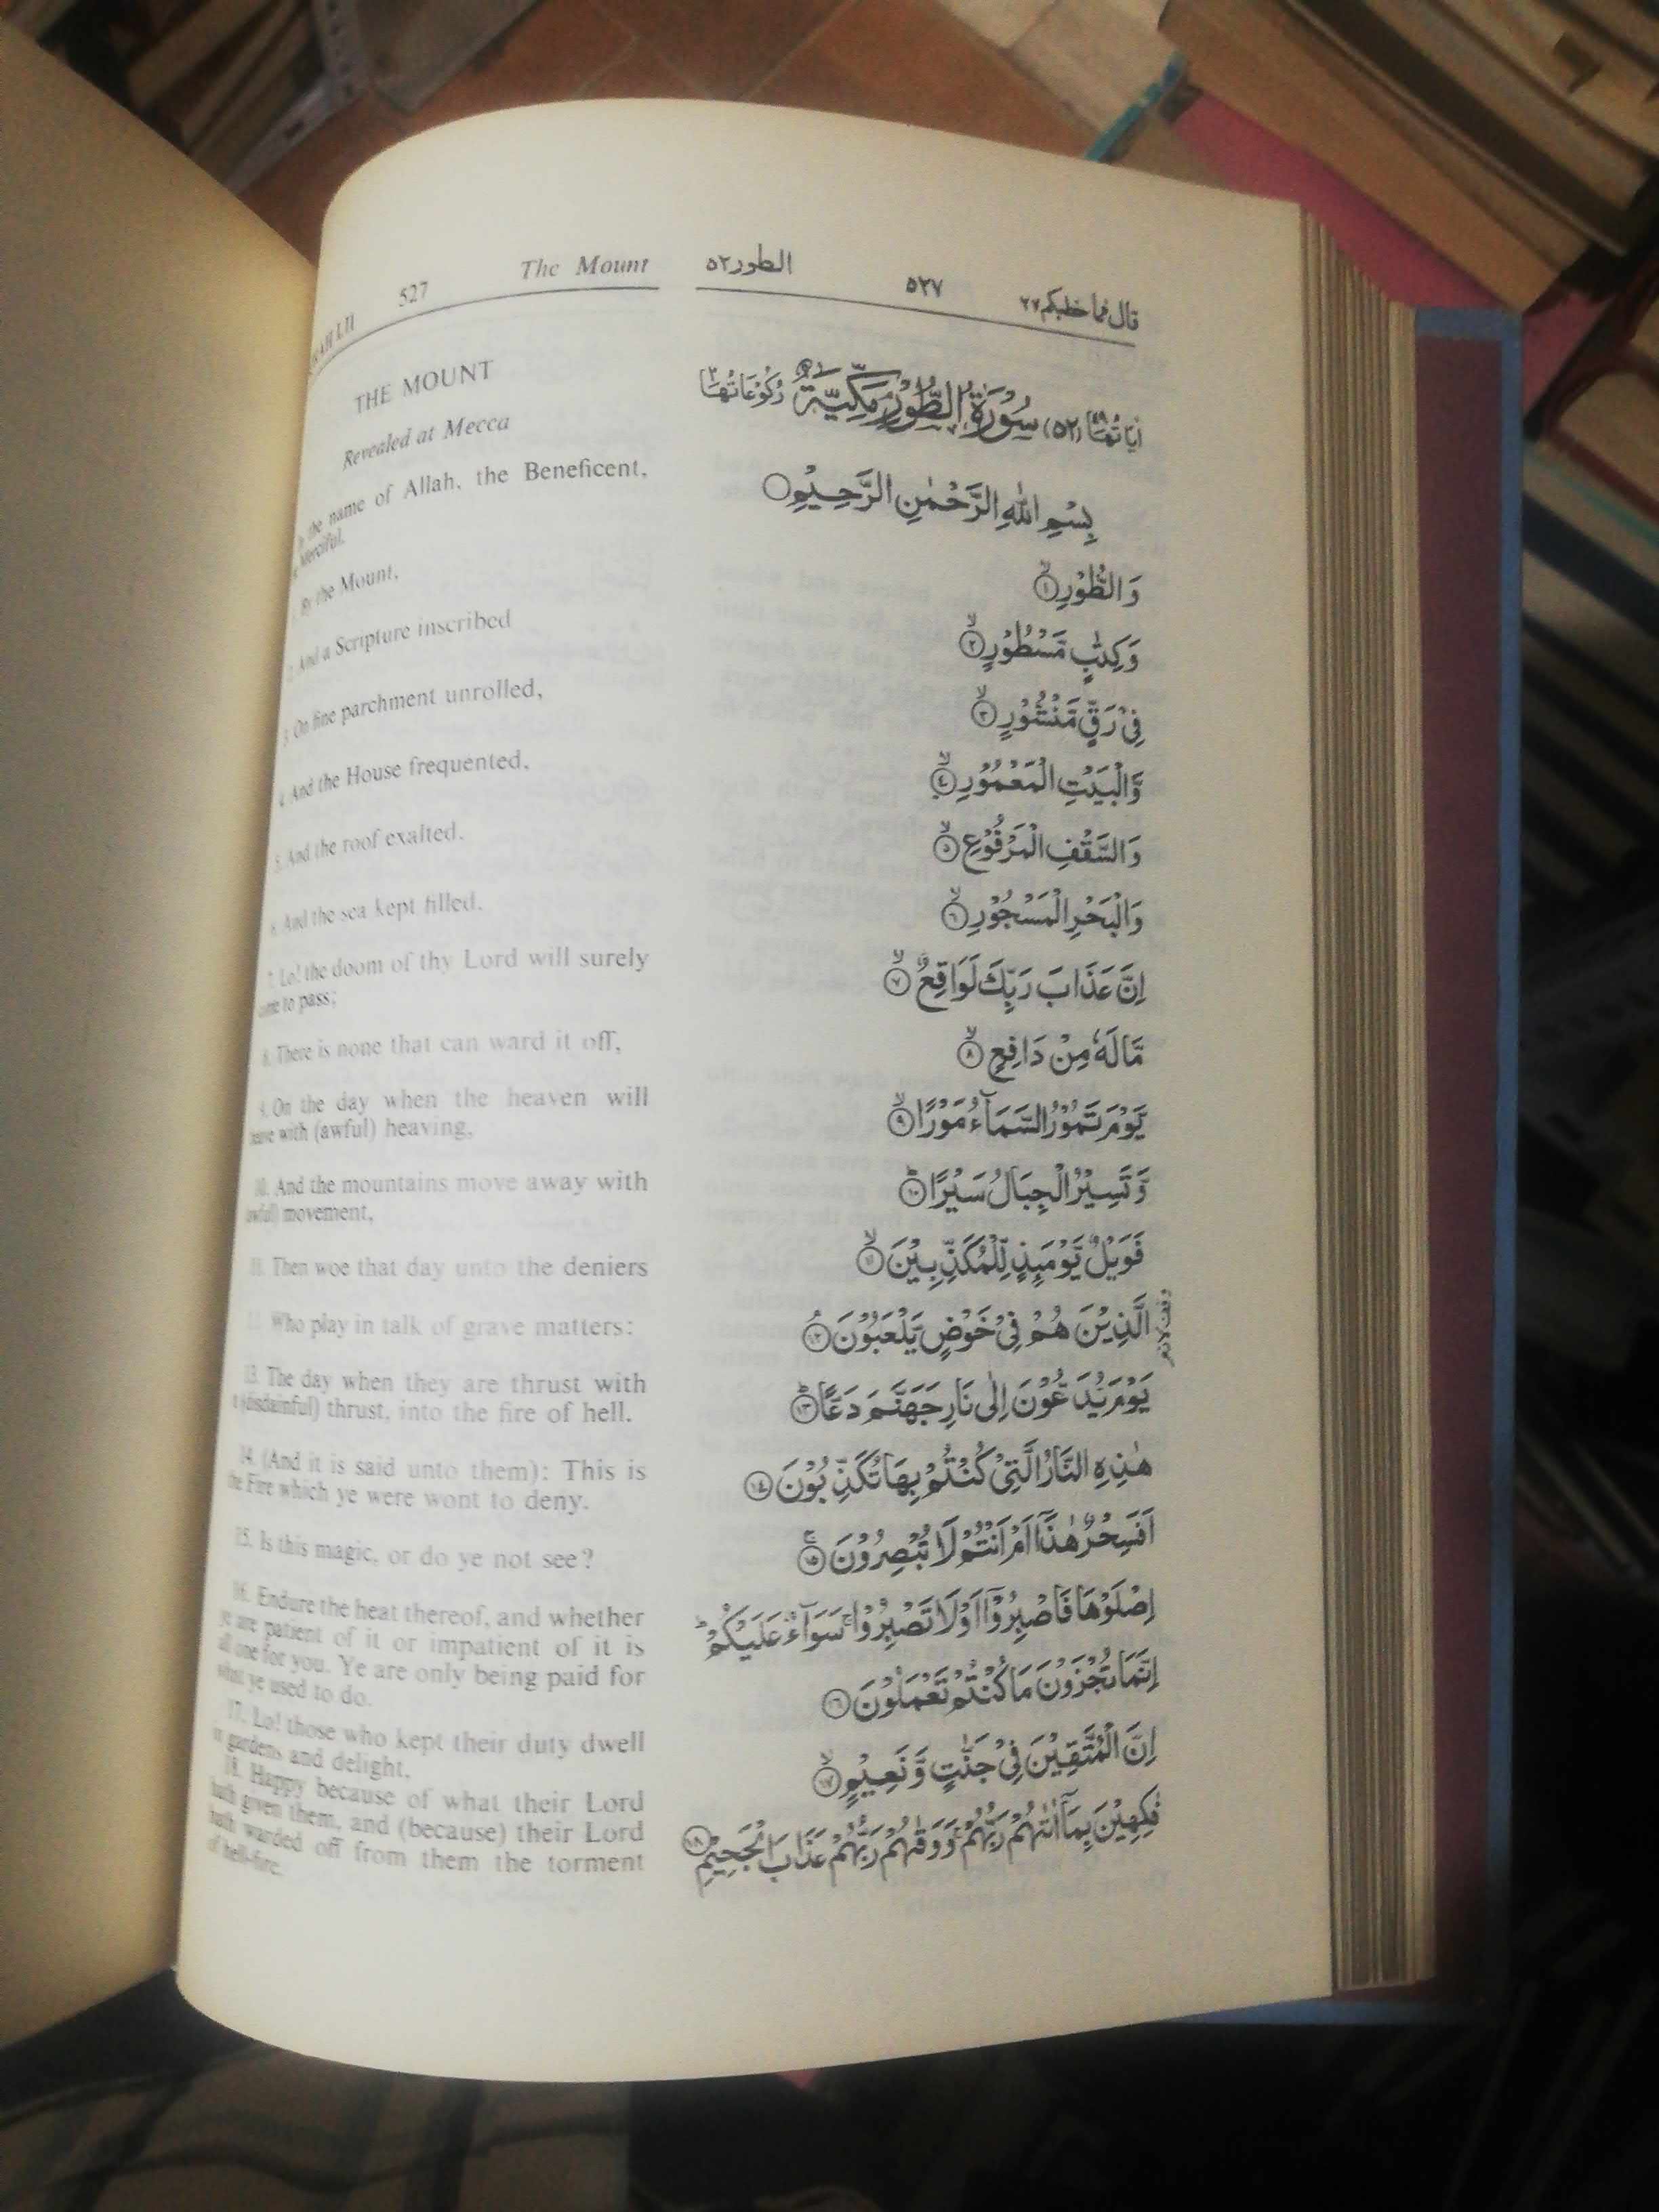 527 The Mount
THE MOUNT
Revealed at Mecca
the name of Allah, the Beneficent,
Merciful.
By the Mount,
And a Scripture inscribed
3. On fine parchment unrolled,
4. And the House frequented,
5. And the roof exalted.
And the sea kept filled.
7. Lo! the doom of thy Lord will surely
to pass;
8. There is none that can ward it off,
9. On the day when the heaven will
with (awful) heaving,
10. And the mountains move away with
movement,
11. Then woe that day unto the deniers
Who play in talk of grave matters:
13. The day when they are thrust with
(disdainful) thrust, into the fire of hell.
14. (And it is said unto them): This is
the Fire which ye were wont to deny.
15. Is this magic, or do ye not see?
16. Endure the heat thereof, and whether
ye are patient of it or impatient of it is
all one for you. Ye are only being paid for
what ye used to do.
17. Lo! those who kept their duty dwell
in gardens and delight,
18. Happy because of what their Lord
hath given them, and (because) their Lord
hath warded off from them the torment
of hell-fire.
قال فما خطبكم ٢٧ ٥٢٧ الطور ٥٢
اٰيَاتُهَا ٤٩ (٥٢) سُوْرَةُ الطُّوْرِ مَكِّيَّةٌ رُكُوْعَاتُهَا ٢
بِسْمِ اللّٰهِ الرَّحْمٰنِ الرَّحِيْمِ
وَالطُّوْرِ ۙ ١
وَكِتٰبٍ مَّسْطُوْرٍ ۙ ٢
فِيْ رَقٍّ مَّنْشُوْرٍ ۙ ٣
وَّالْبَيْتِ الْمَعْمُوْرِ ۙ ٤
وَالسَّقْفِ الْمَرْفُوْعِ ۙ ٥
وَالْبَحْرِ الْمَسْجُوْرِ ۙ ٦
اِنَّ عَذَابَ رَبِّكَ لَوَاقِعٌ ۙ ٧
مَّا لَهٗ مِنْ دَافِعٍ ۙ ٨
يَّوْمَ تَمُوْرُ السَّمَآءُ مَوْرًا ۙ ٩
وَّتَسِيْرُ الْجِبَالُ سَيْرًا ؕ ١٠
فَوَيْلٌ يَّوْمَىِٕذٍ لِّلْمُكَذِّبِيْنَ ۙ ١١
الَّذِيْنَ هُمْ فِيْ خَوْضٍ يَّلْعَبُوْنَ ۘ ١٢
يَوْمَ يُدَعُّوْنَ اِلٰى نَارِ جَهَنَّمَ دَعًّا ؕ ١٣
هٰذِهِ النَّارُ الَّتِيْ كُنْتُمْ بِهَا تُكَذِّبُوْنَ ١٤
اَفَسِحْرٌ هٰذَاۤ اَمْ اَنْتُمْ لَا تُبْصِرُوْنَ ۚ ١٥
اِصْلَوْهَا فَاصْبِرُوْۤا اَوْ لَا تَصْبِرُوْا ۚ سَوَآءٌ عَلَيْكُمْ ؕ
اِنَّمَا تُجْزَوْنَ مَا كُنْتُمْ تَعْمَلُوْنَ ١٦
اِنَّ الْمُتَّقِيْنَ فِيْ جَنّٰتٍ وَّنَعِيْمٍ ۙ ١٧
فٰكِهِيْنَ بِمَاۤ اٰتٰىهُمْ رَبُّهُمْ ۚ وَوَقٰىهُمْ رَبُّهُمْ عَذَابَ الْجَحِيْمِ ١٨